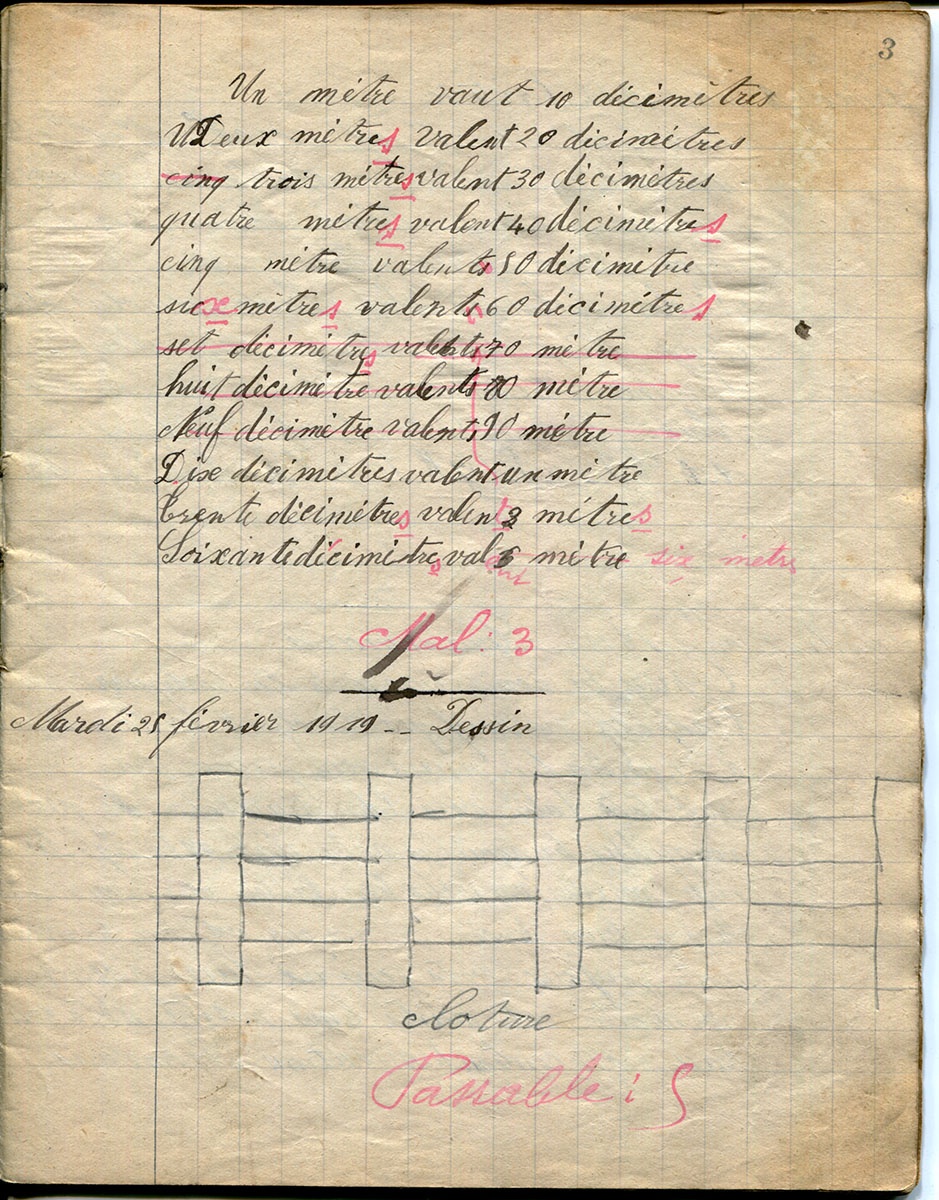 3
Un mètre vaut 10 décimètres
Deux mètres valent 20 décimètres
cinq trois mètres valent 30 décimètres
quatre mètres valent 40 décimètres
cinq mètre valents 50 décimètre
sixe mètres valents 60 décimètres
set décimètres valents 70 mètre
huit décimètre valents 80 mètre
Neuf décimètre valents 90 mètre
Dixe décimètres valent un mètre
Trente décimètres valent 3 mètres
Soixante décimètres val 6 mètre six mètres
Mal : 3
Mardi 25 février 1919 -- Dessin
cloture
Passable : 5